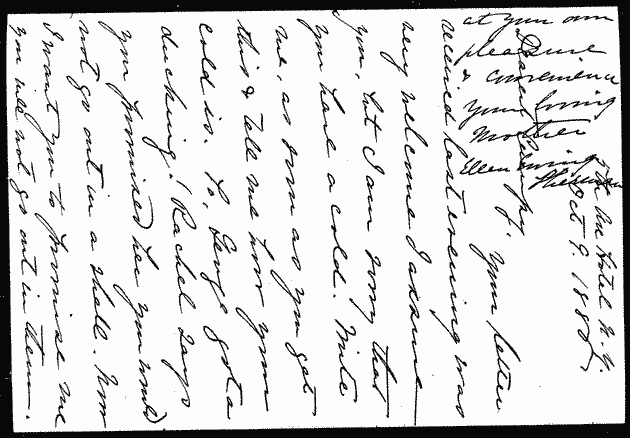 5th Ave Hotel N.Y.
Oct 9. 1886
Dear Cumpy. Your letter
received last evening was
very welcome I assure
you, but I am sorry that
you have a cold. Write
me, as soon as you get
this & tell me how your
cold is. So, George got a
ducking! Rachel says
you promised her you would
not go out in a shell. Now
I want you to promise me
you will not go out in them.
at your own
pleasure
& convenience
Your loving
Mother
Ellen Ewing Sherman